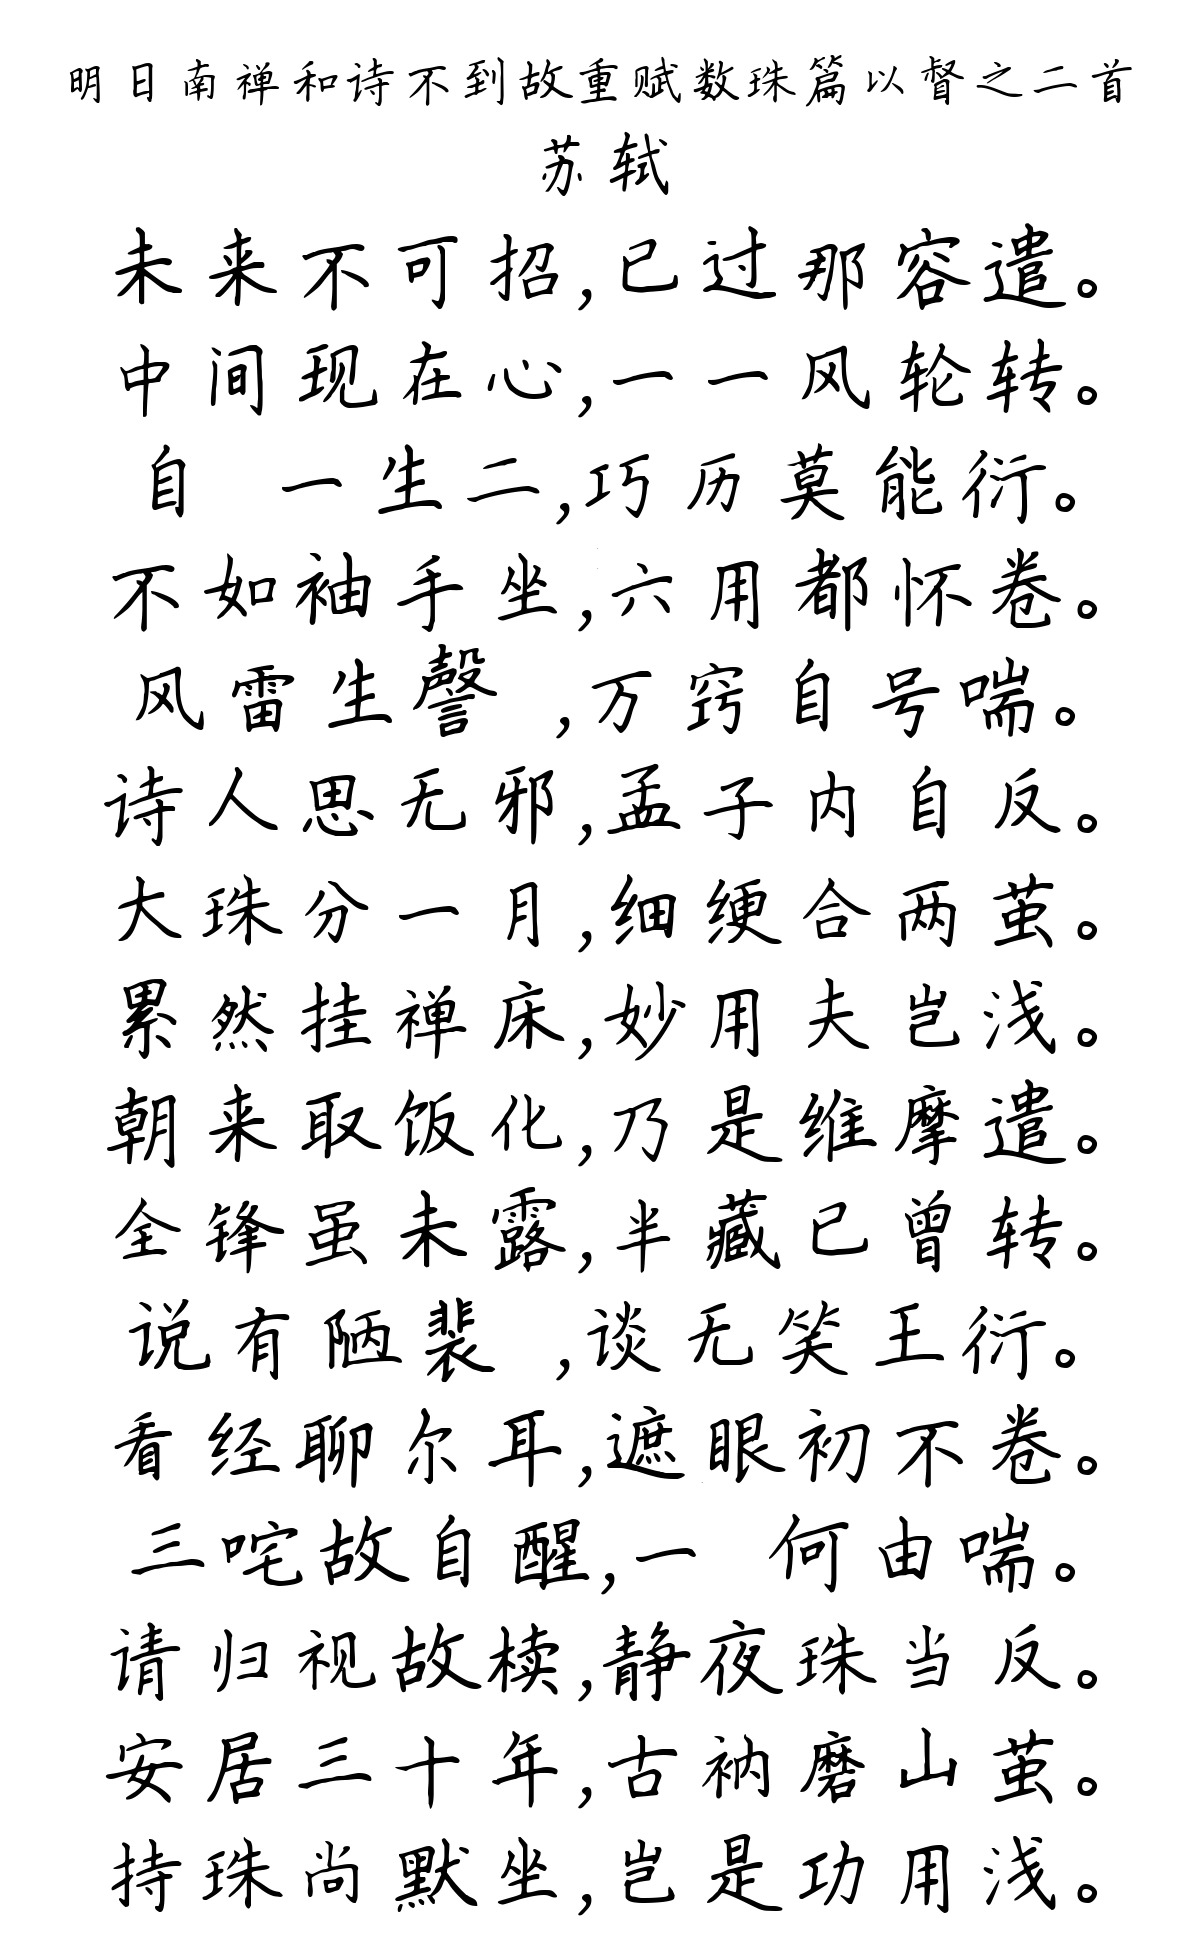 明日南禅和诗不到故重赋数珠篇以督之二首
苏轼
未来不可招,已过那容遣。
中间现在心,一一风轮转。
自 一生二,巧历莫能衍。
不如袖手坐,六用都怀卷。
风雷生謦 ,万窍自号喘。
诗人思无邪,孟子内自反。
大珠分一月,细绠合两茧。
累然挂禅床,妙用夫岂浅。
朝来取饭化,乃是维摩遣。
全锋虽未露,半藏已曾转。
说有陋裴 ,谈无笑王衍。
看经聊尔耳,遮眼初不卷。
三咤故自醒,一 何由喘。
请归视故椟,静夜珠当反。
安居三十年,古衲磨山茧。
持珠尚默坐,岂是功用浅。